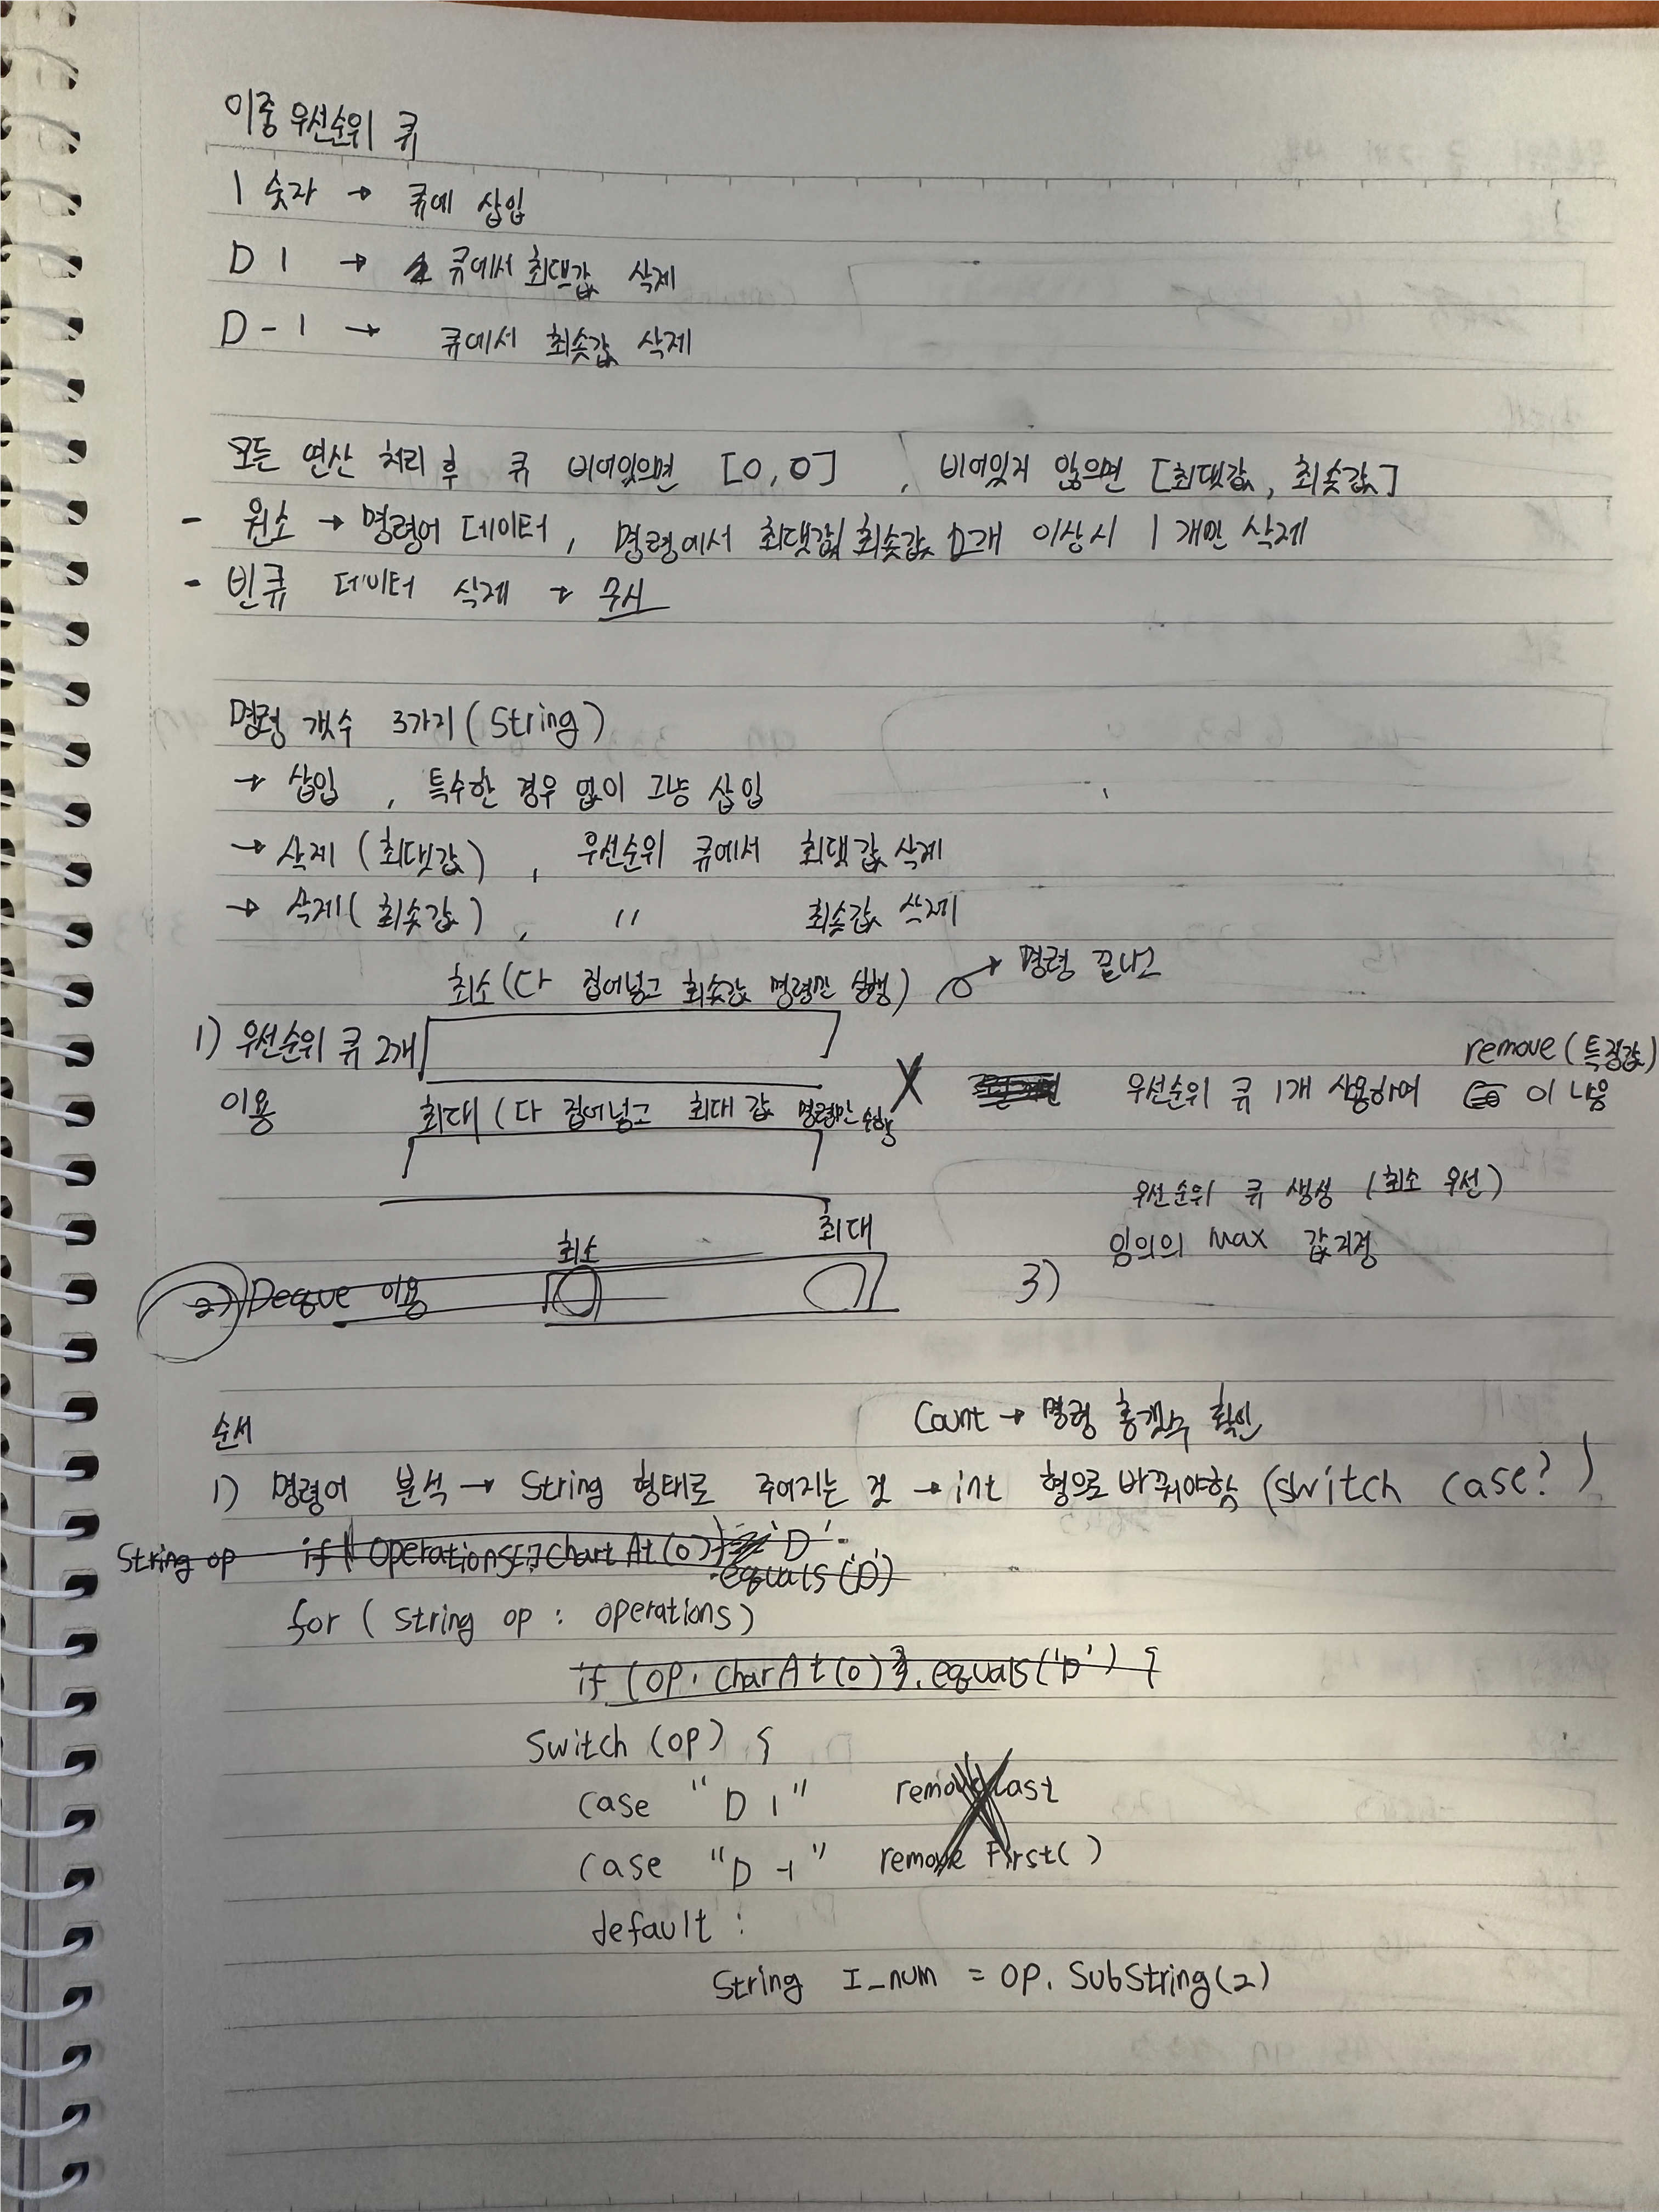 이중 우선순위 큐
I 숫자 → 큐에 삽입
D 1 → 큐에서 최댓값 삭제
D - 1 → 큐에서 최솟값 삭제
모든 연산 처리 후 큐 비어있으면 [0,0] , 비어있지 않으면 [최댓값, 최솟값]
- 원소 → 명령어 데이터, 명령에서 최댓값/최솟값 2개 이상시 1개만 삭제
- 빈큐 데이터 삭제 → 무시
명령 갯수 3가지 (String)
→ 삽입 , 특수한 경우 없이 그냥 삽입
→ 삭제 (최댓값) , 우선순위 큐에서 최댓값 삭제
→ 삭제 (최솟값) , 〃 최솟값 삭제
최소 (다 집어넣고 최솟값 명령만 실행) → 명령 끝나고
1) 우선순위 큐 2개
이용
최대 (다 집어넣고 최대 값 명령만 수행
X
remove(특정값)
우선순위 큐 1개 사용하여 이 나음
우선순위 큐 생성 (최소 우선)
임의의 Max 값지정
최소 최대
2) Deque 이용
3)
Count → 명령 총갯수 확인
순서
1) 명령어 분석 → String 형태로 주어지는 것 → int 형으로 바꿔야함 (switch case?)
String op if( Operations[].chartAt(0) 'D'
.equals('D')
for ( String op : operations)
if (op. charAt(0) .equals('D') {
Switch (op) {
case "D 1" remove Last
case "D -1" remove First( )
default :
String I_num = op. SubString(2)